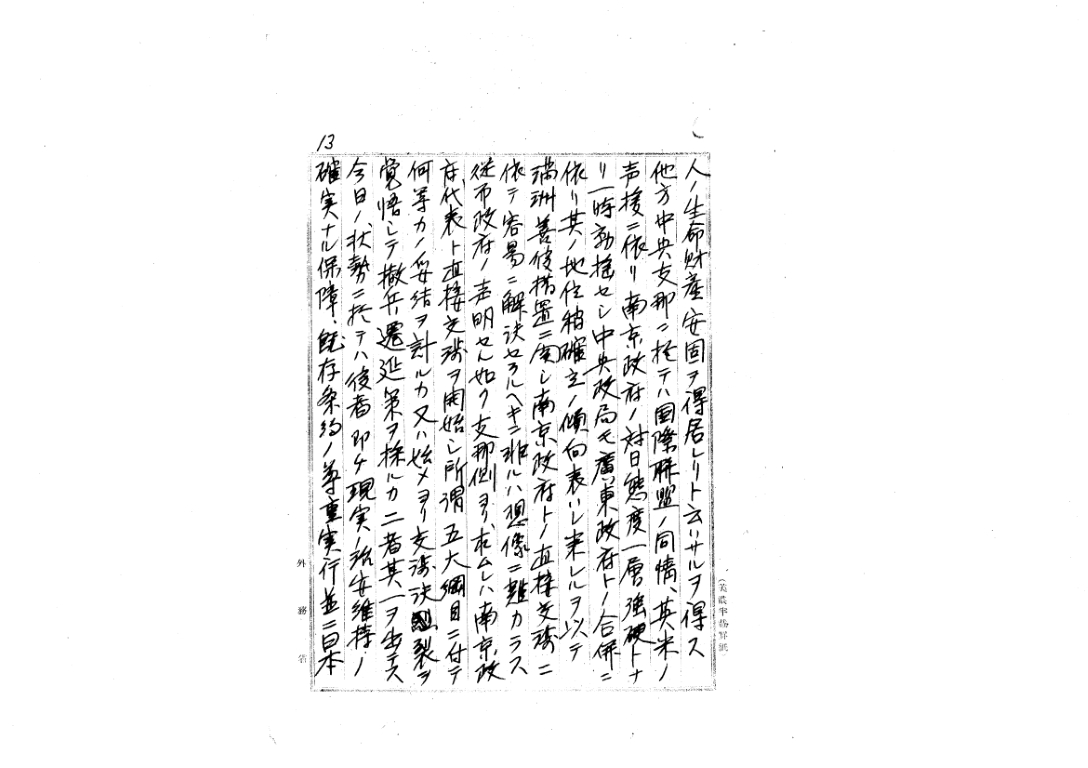 13
人ノ生命財産安固ヲ得居レリト云ハサルヲ得ス
他方中央支那ニ於テハ国際聯盟ノ同情、英米ノ
声援ニ依リ南京政府ノ対日態度一層強硬トナ
リ一時動揺セシ中央政局モ廣東政府トノ合併ニ
依リ其ノ地位稍確立ノ傾向表ハレ来レルヲ以テ
満洲善後措置ニ関シ南京政府トノ直接交渉ニ
依テ容易ニ解決セラルヘキニ非ルハ想像ニ難カラス
従而政府ノ声明セル如ク支那側ヨリ求ムレハ南京政
府代表ト直接交渉ヲ開始シ所謂五大綱目ニ付テ
何等カノ妥結ヲ計ルカ又ハ始メヨリ交渉決裂ヲ
覚悟シテ撤兵遷延策ヲ採ルカ二者其一ヲ出テス
今日ノ状勢ニ於テハ後者即チ現実ノ治安維持ノ
確実ナル保障、既存条約ノ尊重実行並ニ日本
外務省